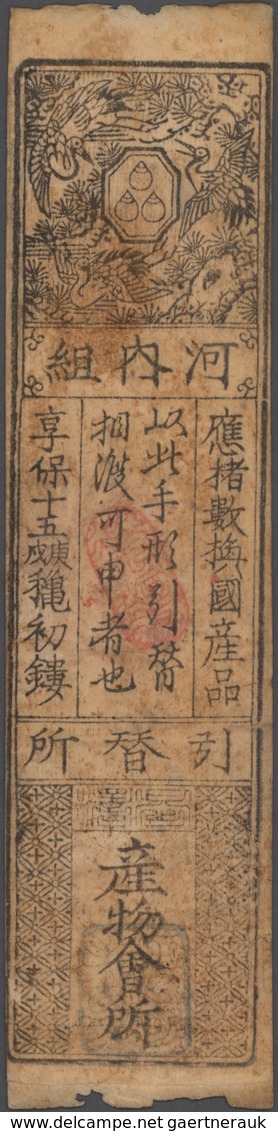 河内組
應楮數換國産品
以此手形引替
相渡可申者也
享保十五庚戌龝初鏤
引替所
産物會所
www.delcampe.net uk-gaertnerauk